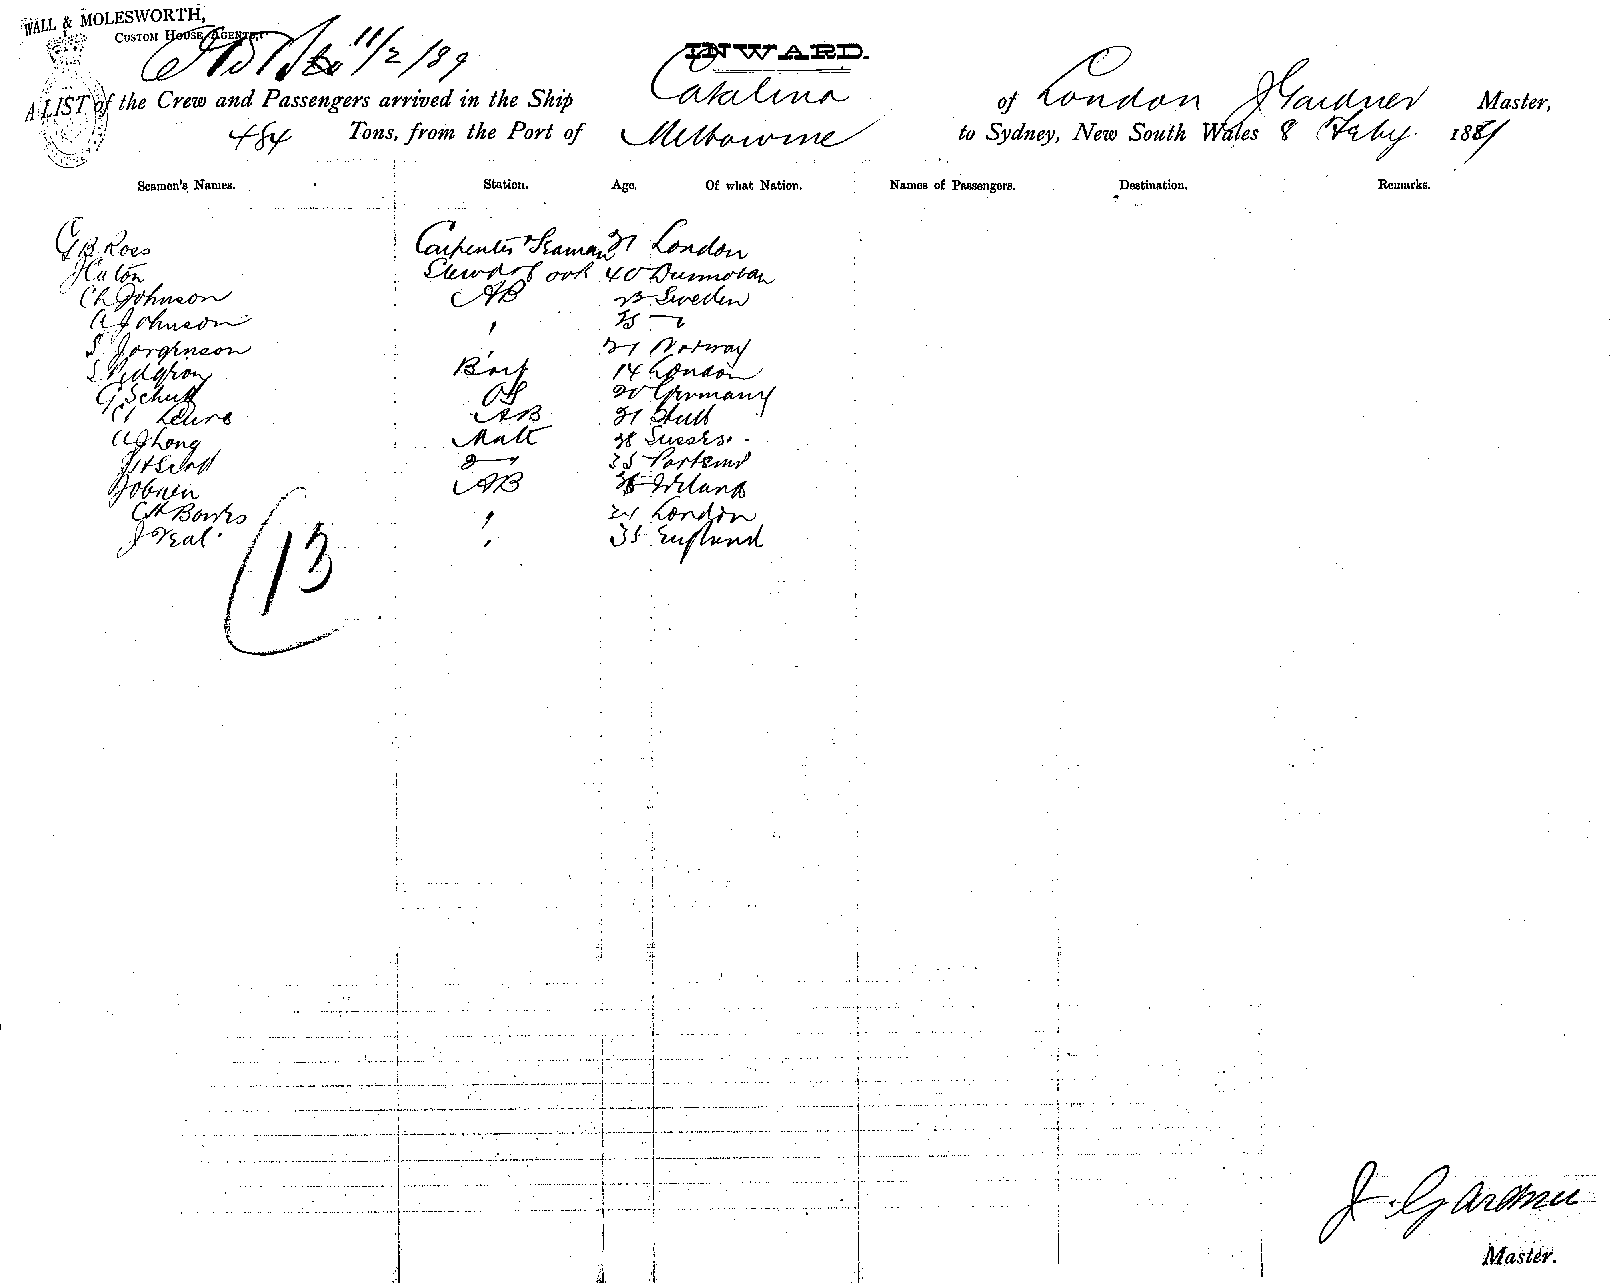 WALL & MOLESWORTH,
CUSTOM HOUSE AGENTS,
11/2/89
INWARD.
A LIST of the Crew and Passengers arrived in the Ship Catalina of London J Gardner Master,
484 Tons, from the Port of Melbourne to Sydney, New South Wales 8 Feby 188
Seamen's Names. Station. Age. Of what Nation. Names of Passengers. Destination. Remarks.
G B Ross Carpenter & Seaman London
J Eaton Stewd & Cook 40
Ch Johnson AB 23 Sweden
A Johnson " 25
S Jorgenson " 21 Norway
S Boy 14 London
G Schutt OS 20 Germany
AB 21 Hull
A J Long Mate 38 Sussex
J H Scott 35
AB Ireland
C H Banks " London
J Neal " 35 England
13
J. Gardner
Master.